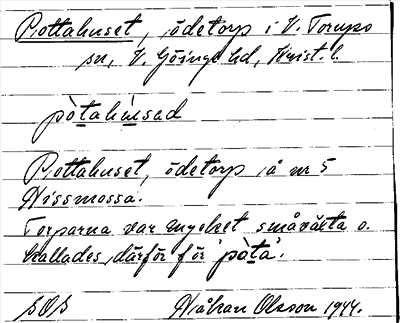 Pottahuset, ödetorp i V. Torups
sn, V. Göinge hd, Krist. l.
pòtahùsad
Pottahuset, ödetorp å nr 5
Nissmossa.
Torparna var mycket småväxta o.
kallades därför för 'pòta'.
SOS Håkan Olsson 1944.